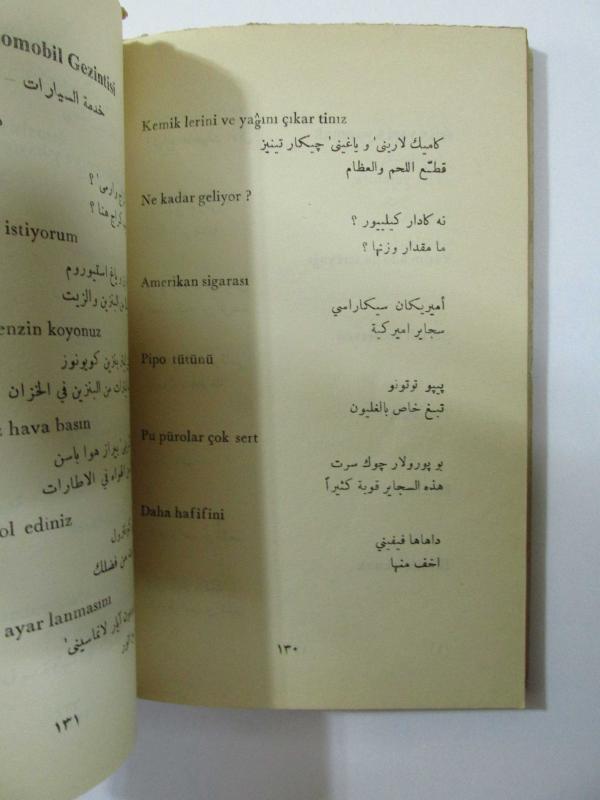 Kemik lerini ve yağını çıkar tinız
كاميك لارينى' و ياغينى' چيكار تينيز
قطّع اللحم والعظام
Ne kadar geliyor ?
نه كادار كيلييور ؟
ما مقدار وزنها ؟
Amerikan sigarası
أميريكان سيكاراسي
سجاير اميركية
Pipo tütünü
پيپو توتونو
تبغ خاص بالغليون
Pu pürolar çok sert
بو پورولار چوك سرت
هذه السجاير قوية كثيراً
Daha hafifini
داهاها فيفيني
اخف منها
١٣٠
omobil Gezintisi
خدمة السيارات –
كراج هنا ؟
istiyorum
ياغ استيوروم
البنزين والزيت
enzin koyonuz
بنزين كويونوز
من البنزين في الخزان
hava basın
بيراز هوا باسن
الهواء في الاطارات
ol ediniz
من فضلك
ayar lanmasını
آيار لانماسينى'
١٣١